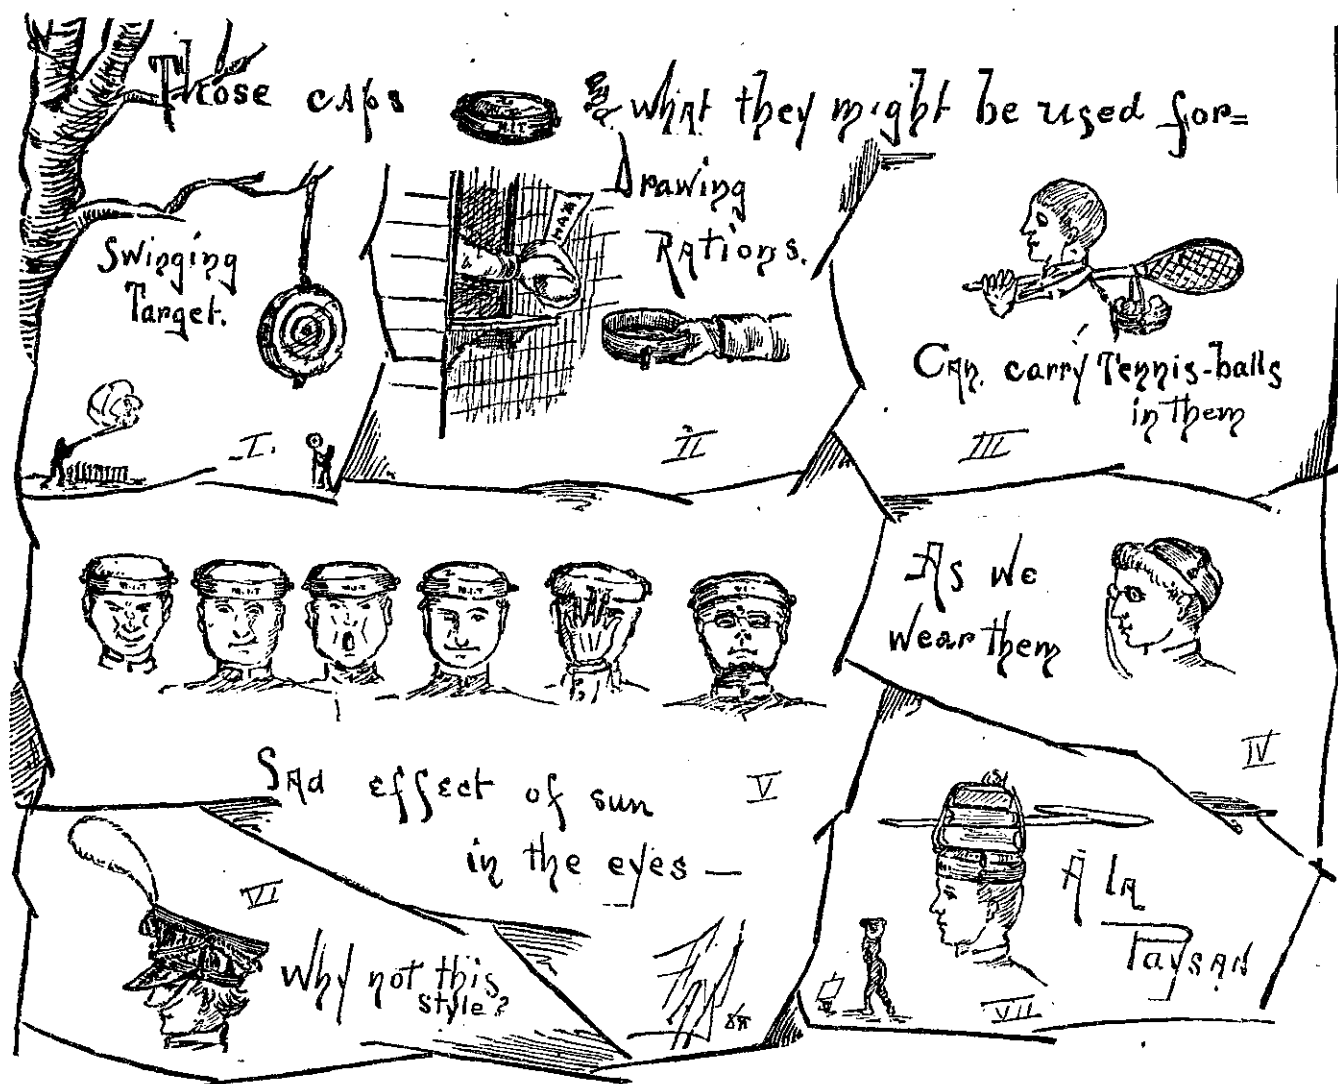 Those caps M.I.T & what they might be used for=
Swinging
Target.
I.
Drawing
Rations.
HAM
II
Can carry Tennis-balls
in them
III
M.I.T M.I.T M.I.T M.I.T
Sad effect of sun
in the eyes —
V
As we
wear them
IV
VI
Why not this
style?
A la
Paysan
VII